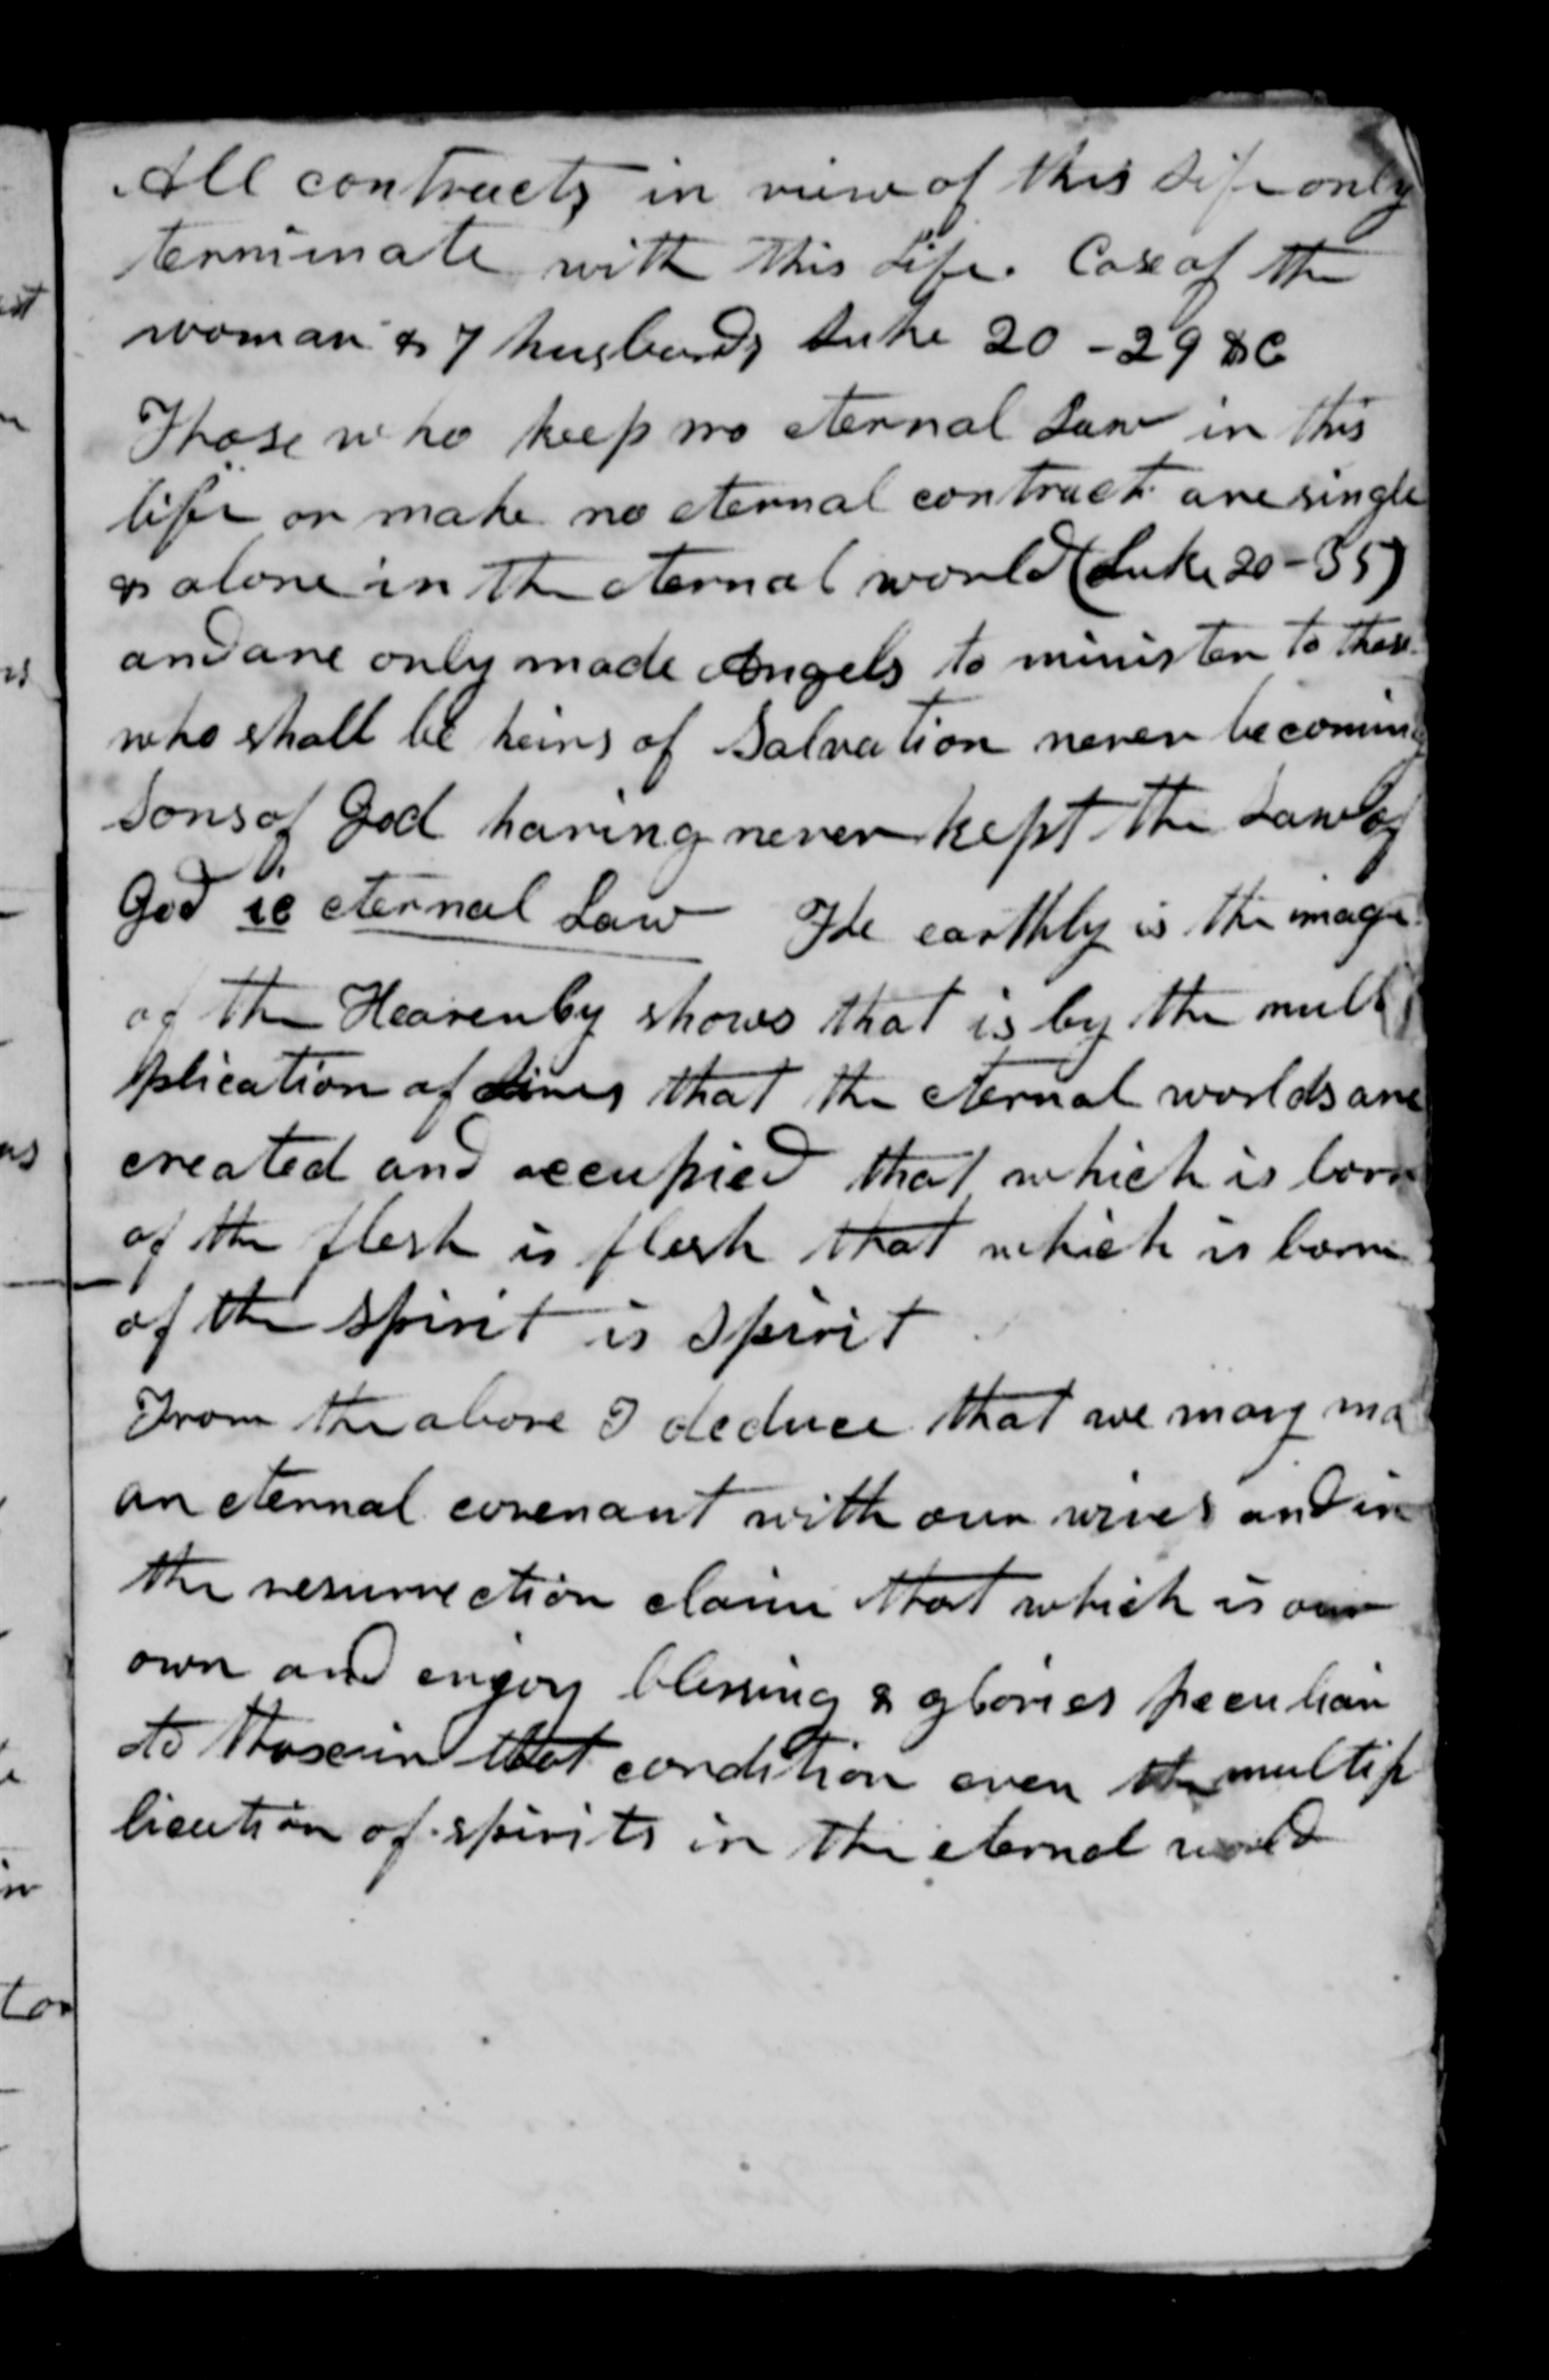 All contracts in view of this Life only
terminate with this Life. Case of the
woman & 7 husbands Luke 20 - 29 &C
Those who keep no eternal Law in this
life or make no eternal contract are single
& alone in the eternal world (Luke 20 - 35)
and are only made Angels to minister to those
who shall be heirs of Salvation never becoming
Sons of God having never kept the Law of
God ie eternal Law The earthly is the image
of the Heavenly shows that is by the multi
plication of Lives that the eternal worlds are
created and occupied that which is born
of the flesh is flesh that which is born
of the spirit is Spirit
From the above I deduce that we may ma
an eternal covenant with our wives and in
the resurrection claim that which is our
own and enjoy blessing & glories peculiar
to those in that condition even the multip
lication of spirits in the eternal world